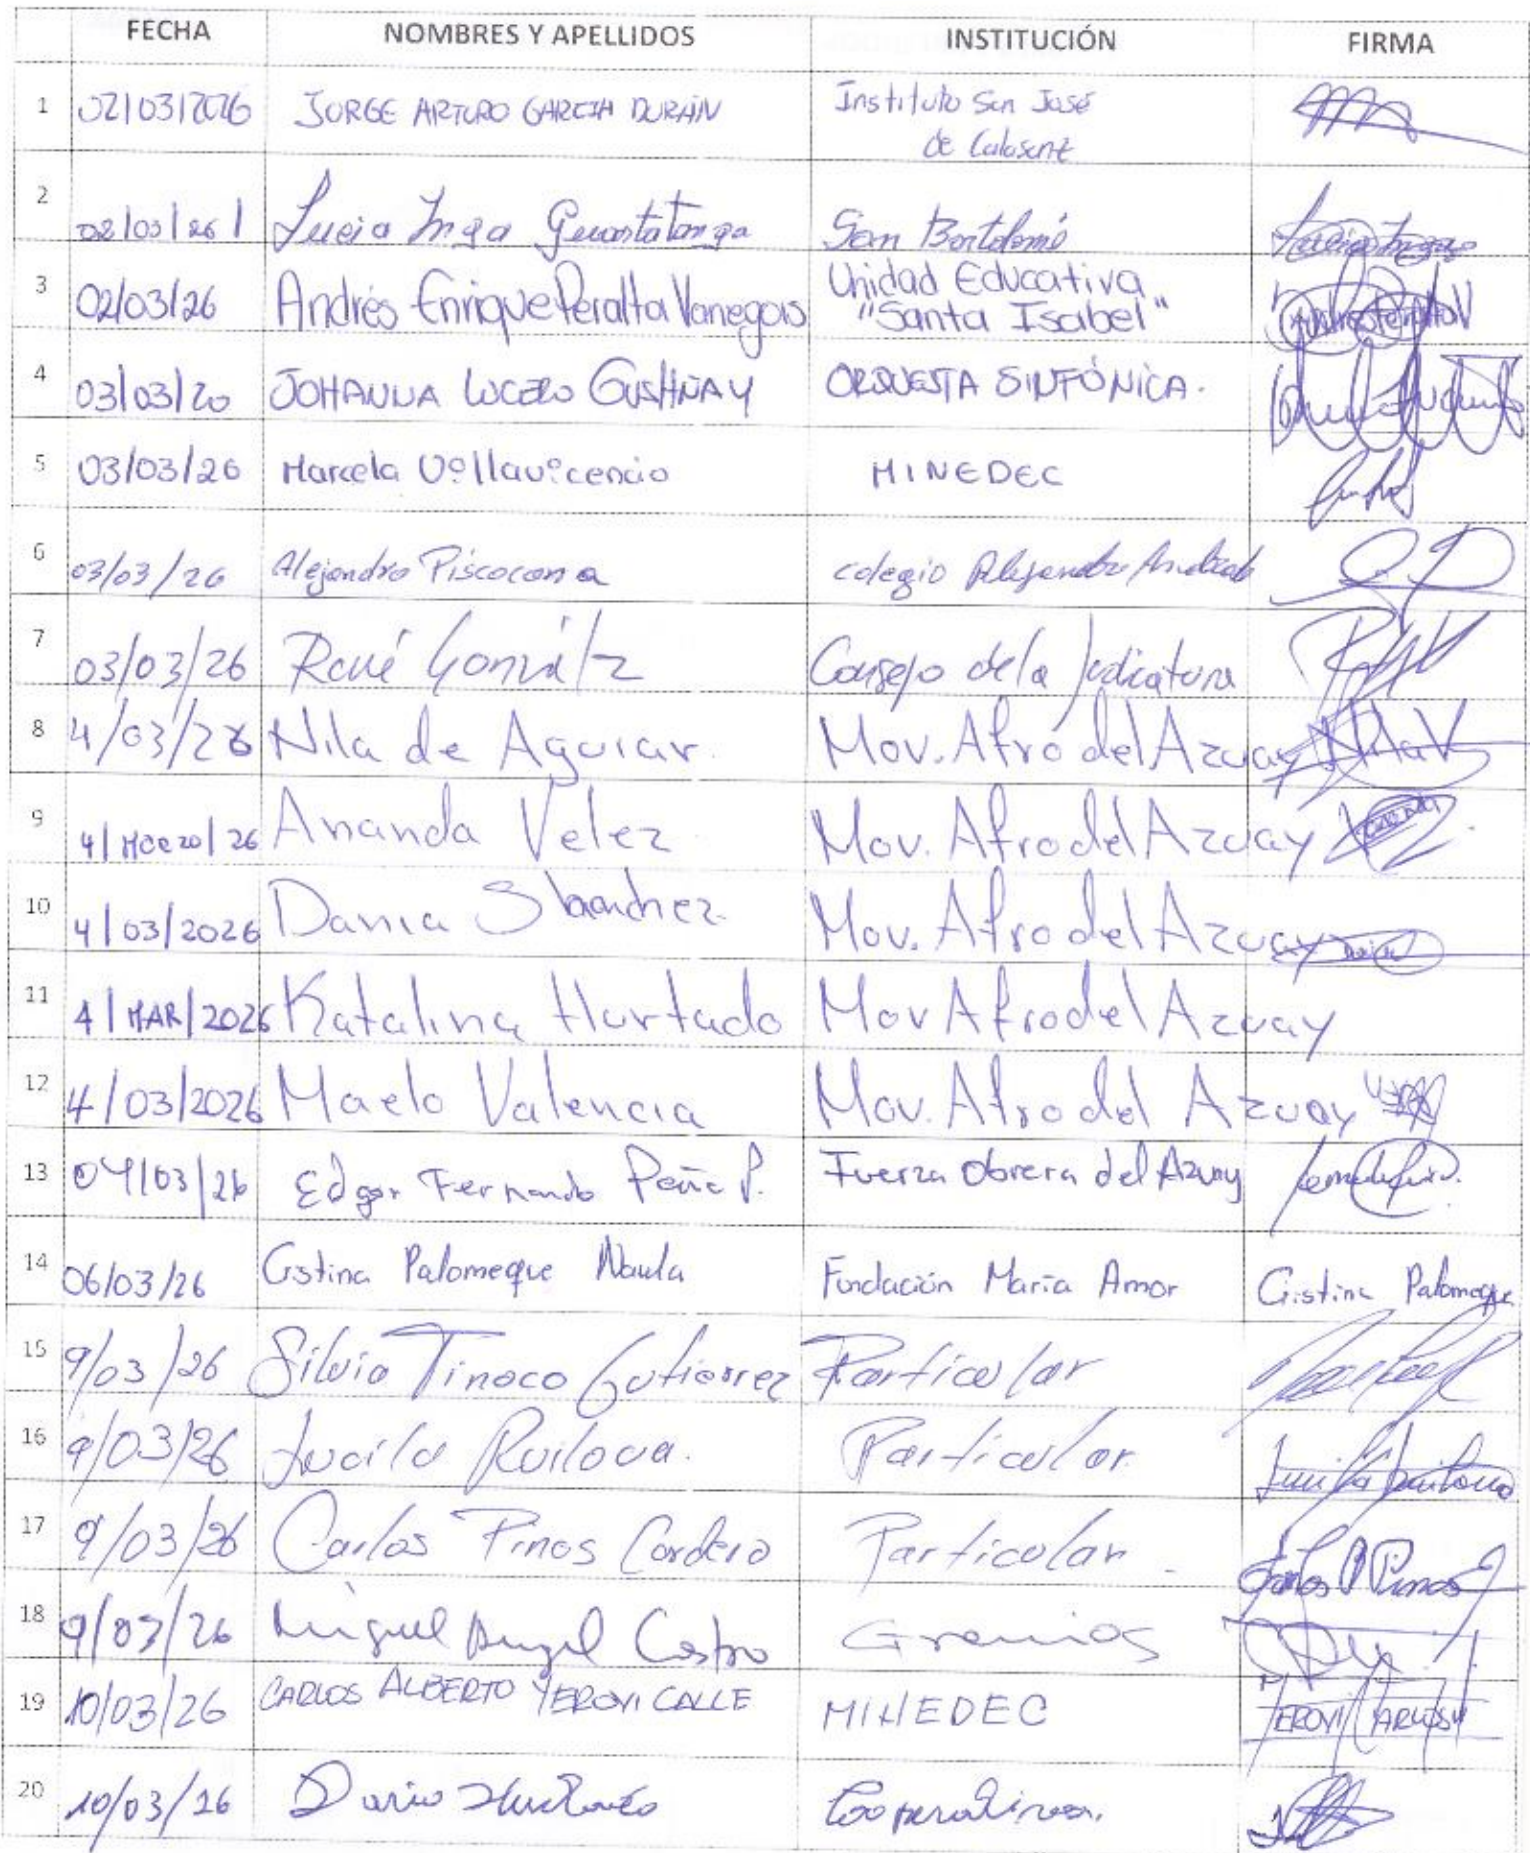 FECHA NOMBRES Y APELLIDOS INSTITUCIÓN FIRMA
1 02/03/2026 JORGE ARTURO GARCIA DURÁN Instituto San José
de Calasanz
2 02/03/26 Lucia Inga Guartatanga San Bartolomé
3 02/03/26 Andrés Enrique Peralta Vanegas Unidad Educativa
"Santa Isabel"
4 03/03/20 JOHANNA LUCERO GUSHÑAY ORQUESTA SINFÓNICA.
5 03/03/26 Marcela Villavicencio MINEDEC
6 03/03/26 Alejandro Piscocama colegio Alejandro Andrade
7 03/03/26 René González Consejo de la Judicatura
8 4/03/26 Nila de Aguiar. Mov. Afro del Azuay Nila V
9 4/Marzo/26 Ananda Velez Mov. Afro del Azuay
10 4/03/2026 Dania Mov. Afro del Azuay
11 4/MAR/2026 Katalina Hurtado Mov Afro del Azuay
12 4/03/2026 Maelo Valencia Mov. Afro del Azuay
13 04/03/26 Edgar Fernando Peña P. Fuerza Obrera del Azuay
14 06/03/26 Cistina Palomeque Naula Fundación María Amor Cistina Palomeque
15 9/03/26 Silvia Tinoco Gutierrez Particular
16 9/03/26 Lucila Ruilova. Particular
17 9/03/26 Carlos Pinos Cordero Particular Carlos P Pinos
18 9/03/26 Miguel Angel Castro Gremios
19 10/03/26 CARLOS ALBERTO YEROVI CALLE MINEDEC YEROVI CARLOS
20 10/03/26 Dario Cooperativa.